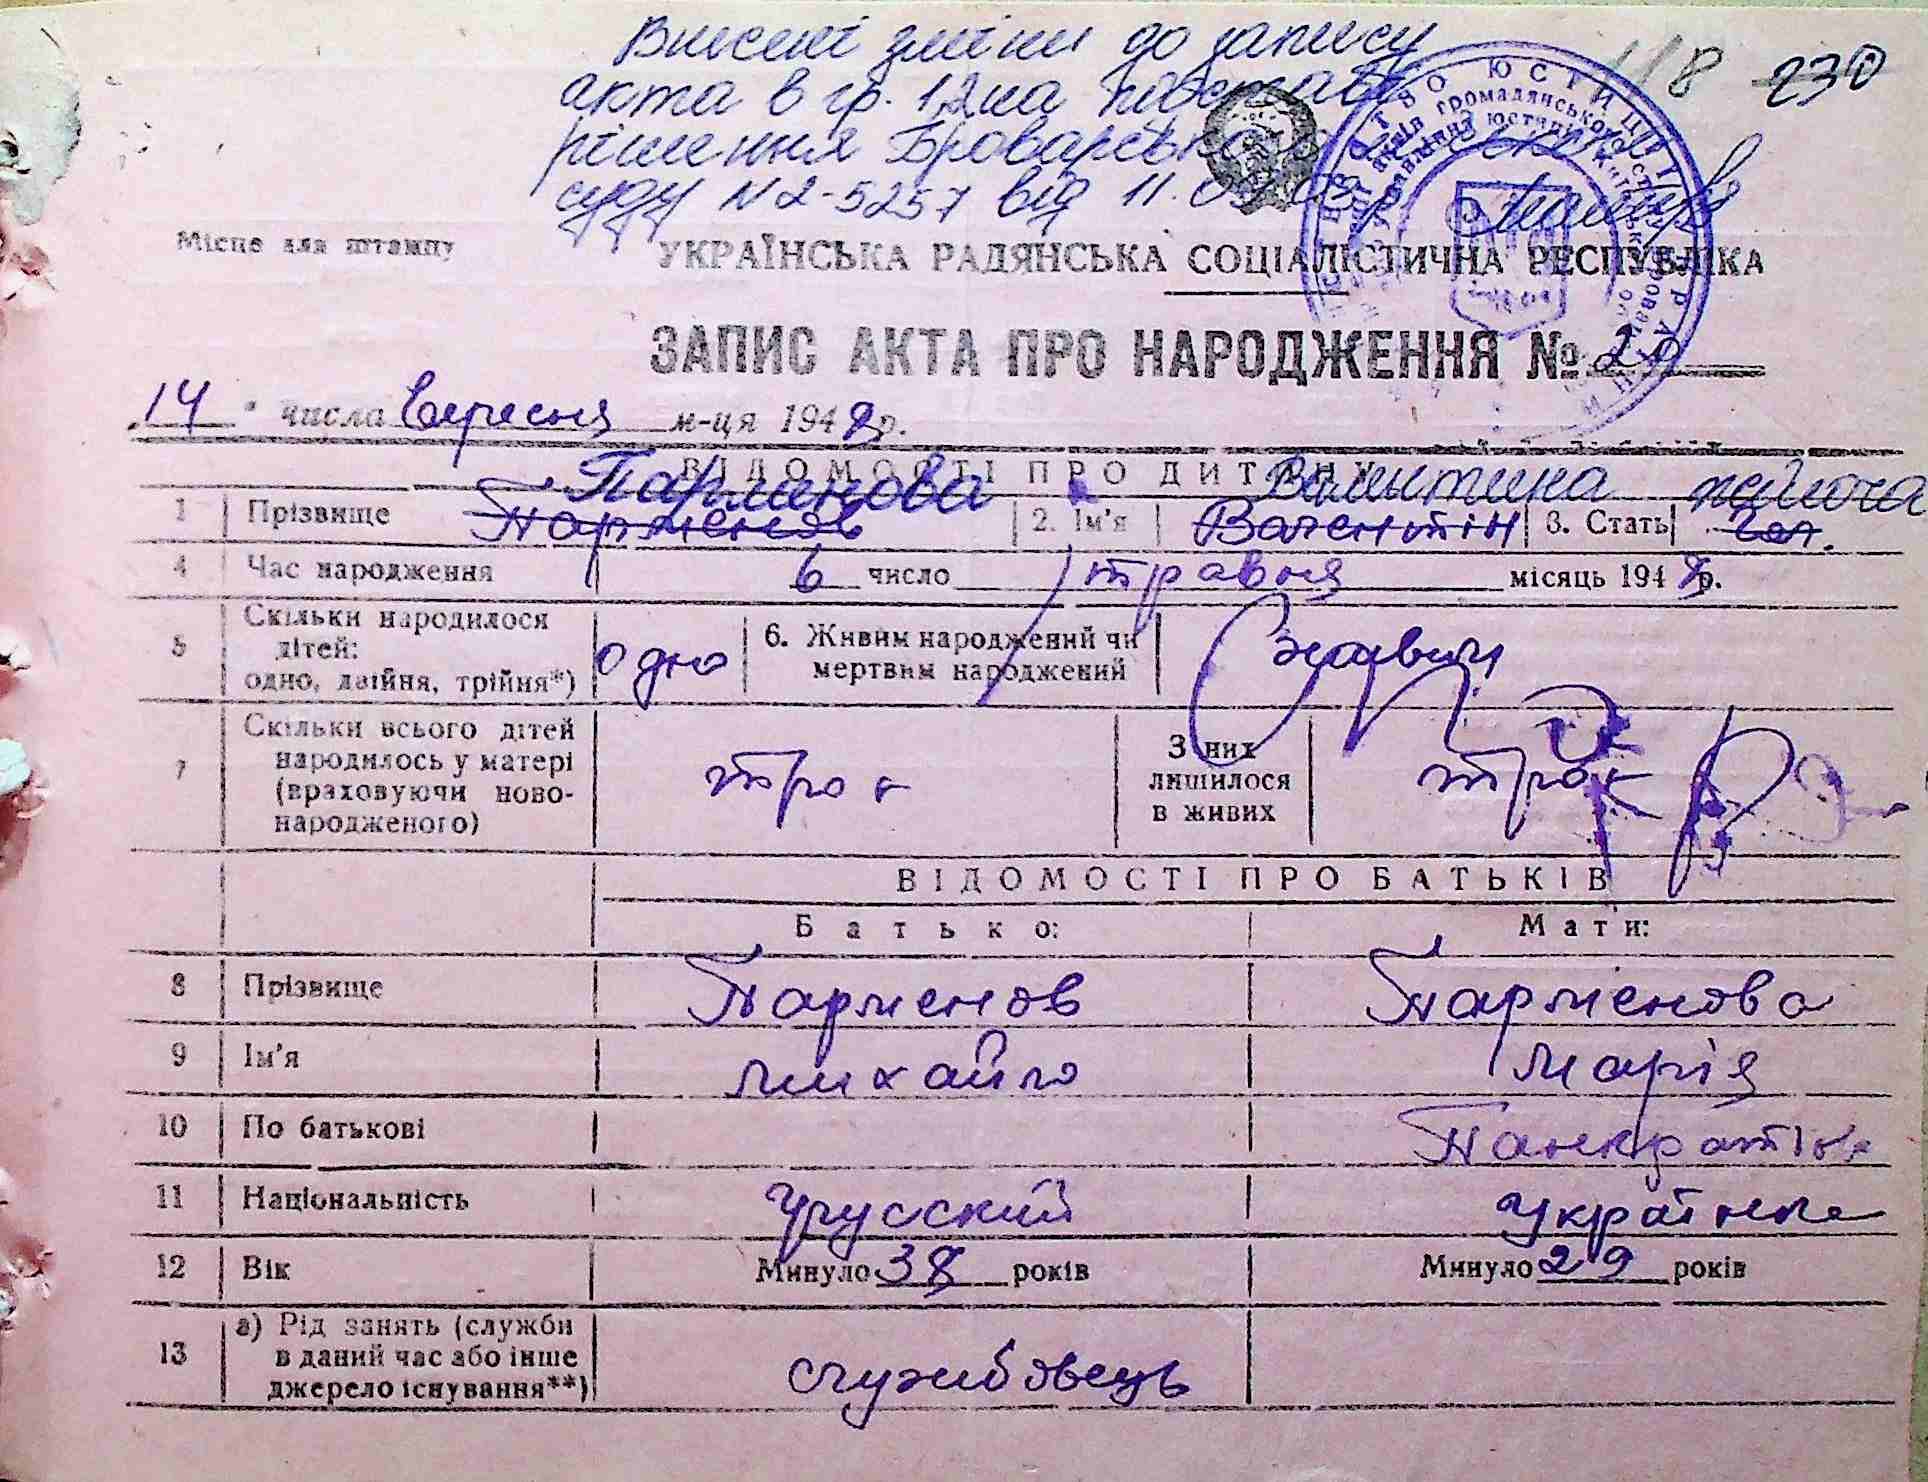 Внесені зміни до запису
118 230
акта в гр. 1,2 на підставі
рішення Броварського
суду N 2-5257 від 11.
Місце для штампу
УКРАЇНСЬКА РАДЯНСЬКА СОЦІАЛІСТИЧНА РЕСПУБЛІКА
ЗАПИС АКТА ПРО НАРОДЖЕННЯ № 20
14 " числа вересня м-ця 1948 р.
ВІДОМОСТІ ПРО ДИТИНУ
Парменова Валентина жіноча
1 Прізвище Парменов 2. Ім'я Валентін 3. Стать чол.
4 Час народження 6 число травня місяць 1948 р.
5 Скільки народилося дітей: одно, двійня, трійня*) одно 6. Живим народжений чи мертвим народжений
7 Скільки всього дітей народилось у матері (враховуючи новонародженого) троє З них лишилося в живих троє
ВІДОМОСТІ ПРО БАТЬКІВ
Батько: Мати:
8 Прізвище Парменов Парменова
9 Ім'я Михайло Марія
10 По батькові Панкратівн
11 Національність русский українка
12 Вік Минуло 38 років Минуло 29 років
13 а) Рід занять (служби в даний час або інше джерело існування**) службовець